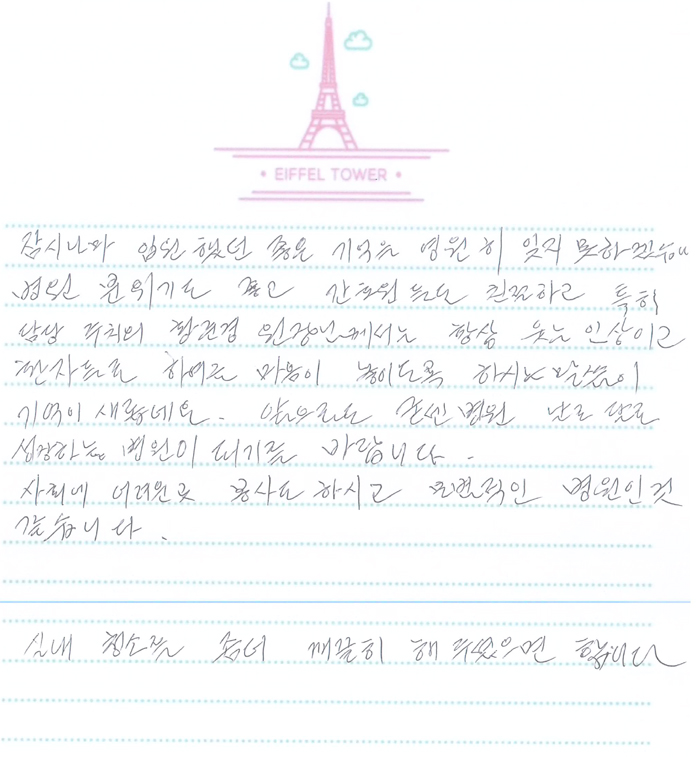 EIFFEL TOWER
잠시나마 입원 했던 좋은 기억은 영원히 잊지 못하겠습니
병원 분위기도 좋고 간호원들도 친절하고 특히
담당 주치의 원장님께서는 항상 웃는 인상이고
환자들로 하여금 마음이 놓이도록 하시는 말씀이
기억이 새롭네요. 앞으로도 병원 날로 달로
성장하는 병원이 되기를 바랍니다.
사회에 어려운곳 봉사도 하시고 모범적인 병원인것
같습니다.
실내 청소좀 좀더 깨끗히 해 주셨으면 합니다